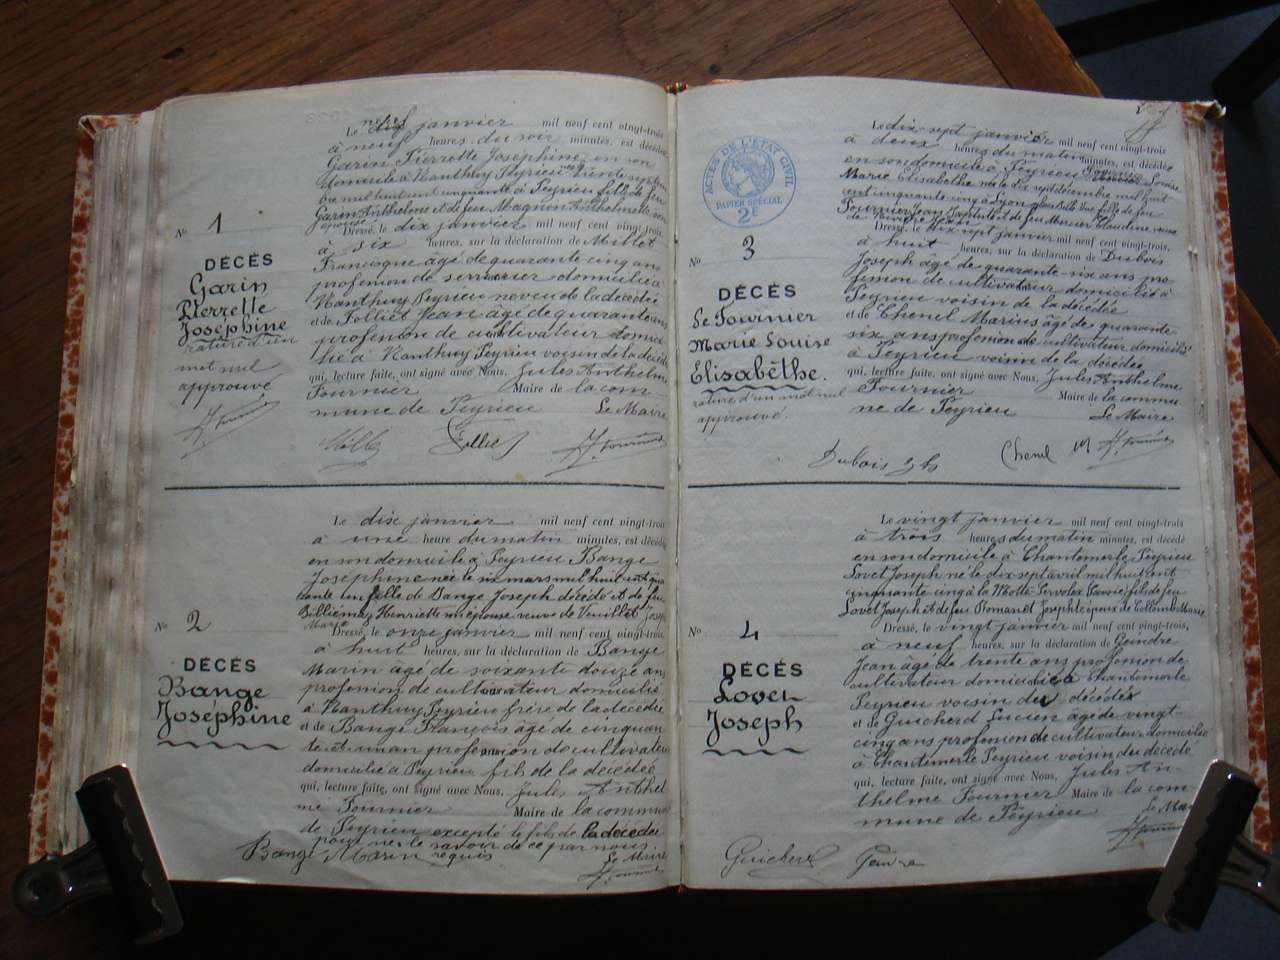 N° 1
DÉCÈS
Garin
Pierrette
Joséphine
rature d'un
mot nul
approuvé
Le neuf janvier mil neuf cent vingt-trois
à neuf heures du soir minutes, est décédée
Garin Pierrette Joséphine en son
domicile à Nanthuy Peyrieu née
bre mil huit cent cinquante à Peyrieu fille de feu
Garin Anthelme et de feu Magnin Anthelmette son
Dressé, le dix janvier mil neuf cent vingt-trois
à six heures, sur la déclaration de Millet
Francisque âgé de quarante cinq ans
profession de serrurier domicilié à
Nanthuy Peyrieu neveu de la décédée
et de Folliet Jean âgé de quarante ans
profession de cultivateur domici
lié à Nanthuy Peyrieu voisin de la décédée
qui, lecture faite, ont signé avec Nous, Jules Anthelme
Fournier Maire de la com
mune de Peyrieu Le Maire
N° 2
DÉCÈS
Bange
Joséphine
Le dix janvier mil neuf cent vingt-trois
à une heure du matin minutes, est décédée
en son domicile à Peyrieu Bange
Joséphine née le six mars mil huit cent qua
rante un fille de Bange Joseph décédé et de feu
Billiémaz Henriette veuve de Vuillet Joseph
Marie
Dressé, le onze janvier mil neuf cent vingt-trois,
à huit heures, sur la déclaration de Bange
Marin âgé de soixante douze ans
profession de cultivateur domicilié
à Nanthuy Peyrieu frère de la décédée
et de Bange François âgé de cinquan
te et un an profession de cultivateur
domicilié à Peyrieu fils de la décédée
qui, lecture faite, ont signé avec Nous, Jules Anthel
me Fournier Maire de la commune
de Peyrieu excepté le fils de la décédée
pour ne le savoir de ce par nous
Bange Marin requis Le Maire
ACTES DE L'ÉTAT CIVIL
PAPIER SPÉCIAL
2F
N° 3
DÉCÈS
Le Fournier
Marie Louise
Elisabêthe.
rature d'un mot nul
approuvé
Le dix-sept janvier mil neuf cent vingt-trois
à deux heures du matin minutes, est décédée
en son domicile à Peyrieu Fournier Louise
Marie Elisabethe née le dix sept décembre mil huit
cent cinquante cinq à Lyon fille de feu
Fournier Jean Baptiste et de feu Mercier Claudine
Dressé, le dix sept janvier mil neuf cent vingt-trois,
à huit heures, sur la déclaration de Dubois
Joseph âgé de quarante six ans pro
fession de cultivateur domicilié à
Peyrieu voisin de la décédée
et de Chenel Marius âgé de quarante
six ans profession de cultivateur domicilié
à Peyrieu voisin de la décédée
qui, lecture faite, ont signé avec Nous, Jules Anthelme
Fournier Maire de la commu
ne de Peyrieu Le Maire
Dubois Jh Chenel M
N° 4
DÉCÈS
Lovet
Joseph
Le vingt janvier mil neuf cent vingt-trois
à trois heures du matin minutes, est décédé
en son domicile à Chantemerle Peyrieu
Lovet Joseph né le dix sept avril mil huit cent
cinquante cinq à la Motte Servolex Savoie fils de feu
Lovet Joseph et de feu Romanet Josephte époux de Collomb Marie
Dressé, le vingt janvier mil neuf cent vingt-trois,
à neuf heures, sur la déclaration de Gendre
Jean âgé de trente ans profession de
cultivateur domicilié à Chantemerle
Peyrieu voisin du décédé
et de Guicherd Lucien âgé de vingt-
cinq ans profession de cultivateur domicilié
à Chantemerle Peyrieu voisin du décédé
qui, lecture faite, ont signé avec Nous, Jules An
thelme Fournier Maire de la com-
mune de Peyrieu Le Mai
Guicherd Gendre